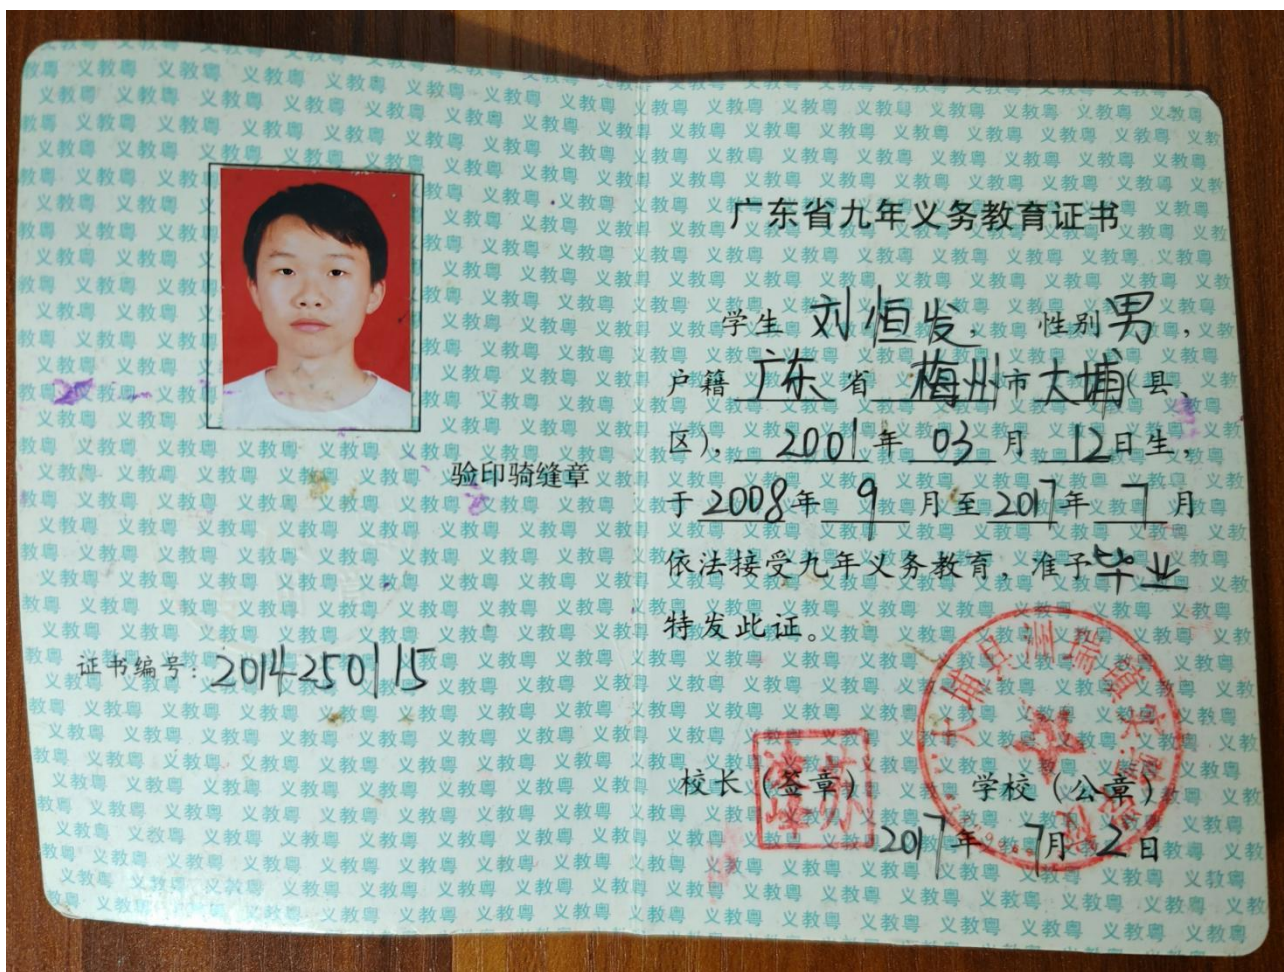 验印骑缝章
证书编号：2014250115
广东省九年义务教育证书
学生 刘恒发， 性别男，
户籍 广东 省 梅州市大埔（县、
区），2001年 03月 12日生，
于2008年 9月至2017年 7月
依法接受九年义务教育，准予毕业
特发此证。
校长（签章） 学校（公章）
2017年 7月 2日